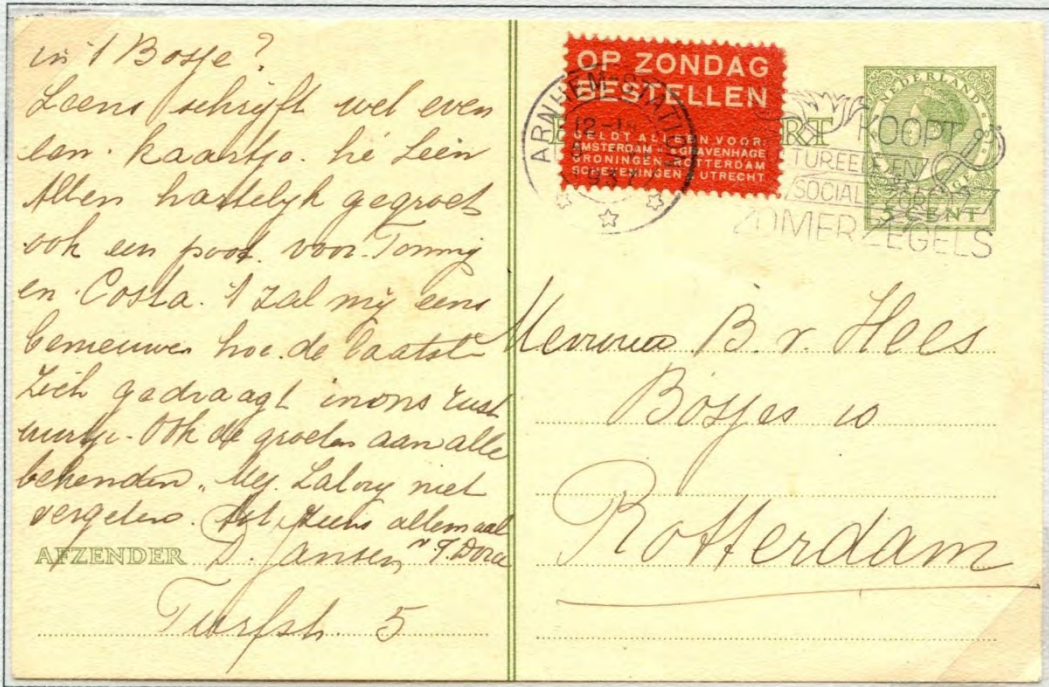 in 't Bosje?
Leens schrijft wel even
een kaartje. hé Leen
Allen hartelijk gegroet
ook een poot voor Tommy
en Costa. 't zal mij eens
benieuwen hoe de laatste
zich gedraagt in ons rust
uurtje. Ook de groeten aan alle
bekenden. Mej. niet
vergeten. Tot ziens allemaal
AFZENDER D. Jansen
Turfstr. 5
OP ZONDAG
BESTELLEN
GELDT ALLEEN VOOR:
AMSTERDAM - 'S GRAVENHAGE
GRONINGEN - ROTTERDAM
SCHEVENINGEN - UTRECHT
ARNHEM-STATION
NEDERLAND
3 CENT
KOOPT
TUREELE EN
SOCIALE
ZOMERZEGELS
Mevrouw B. v. Hees
Bosjes 10
Rotterdam